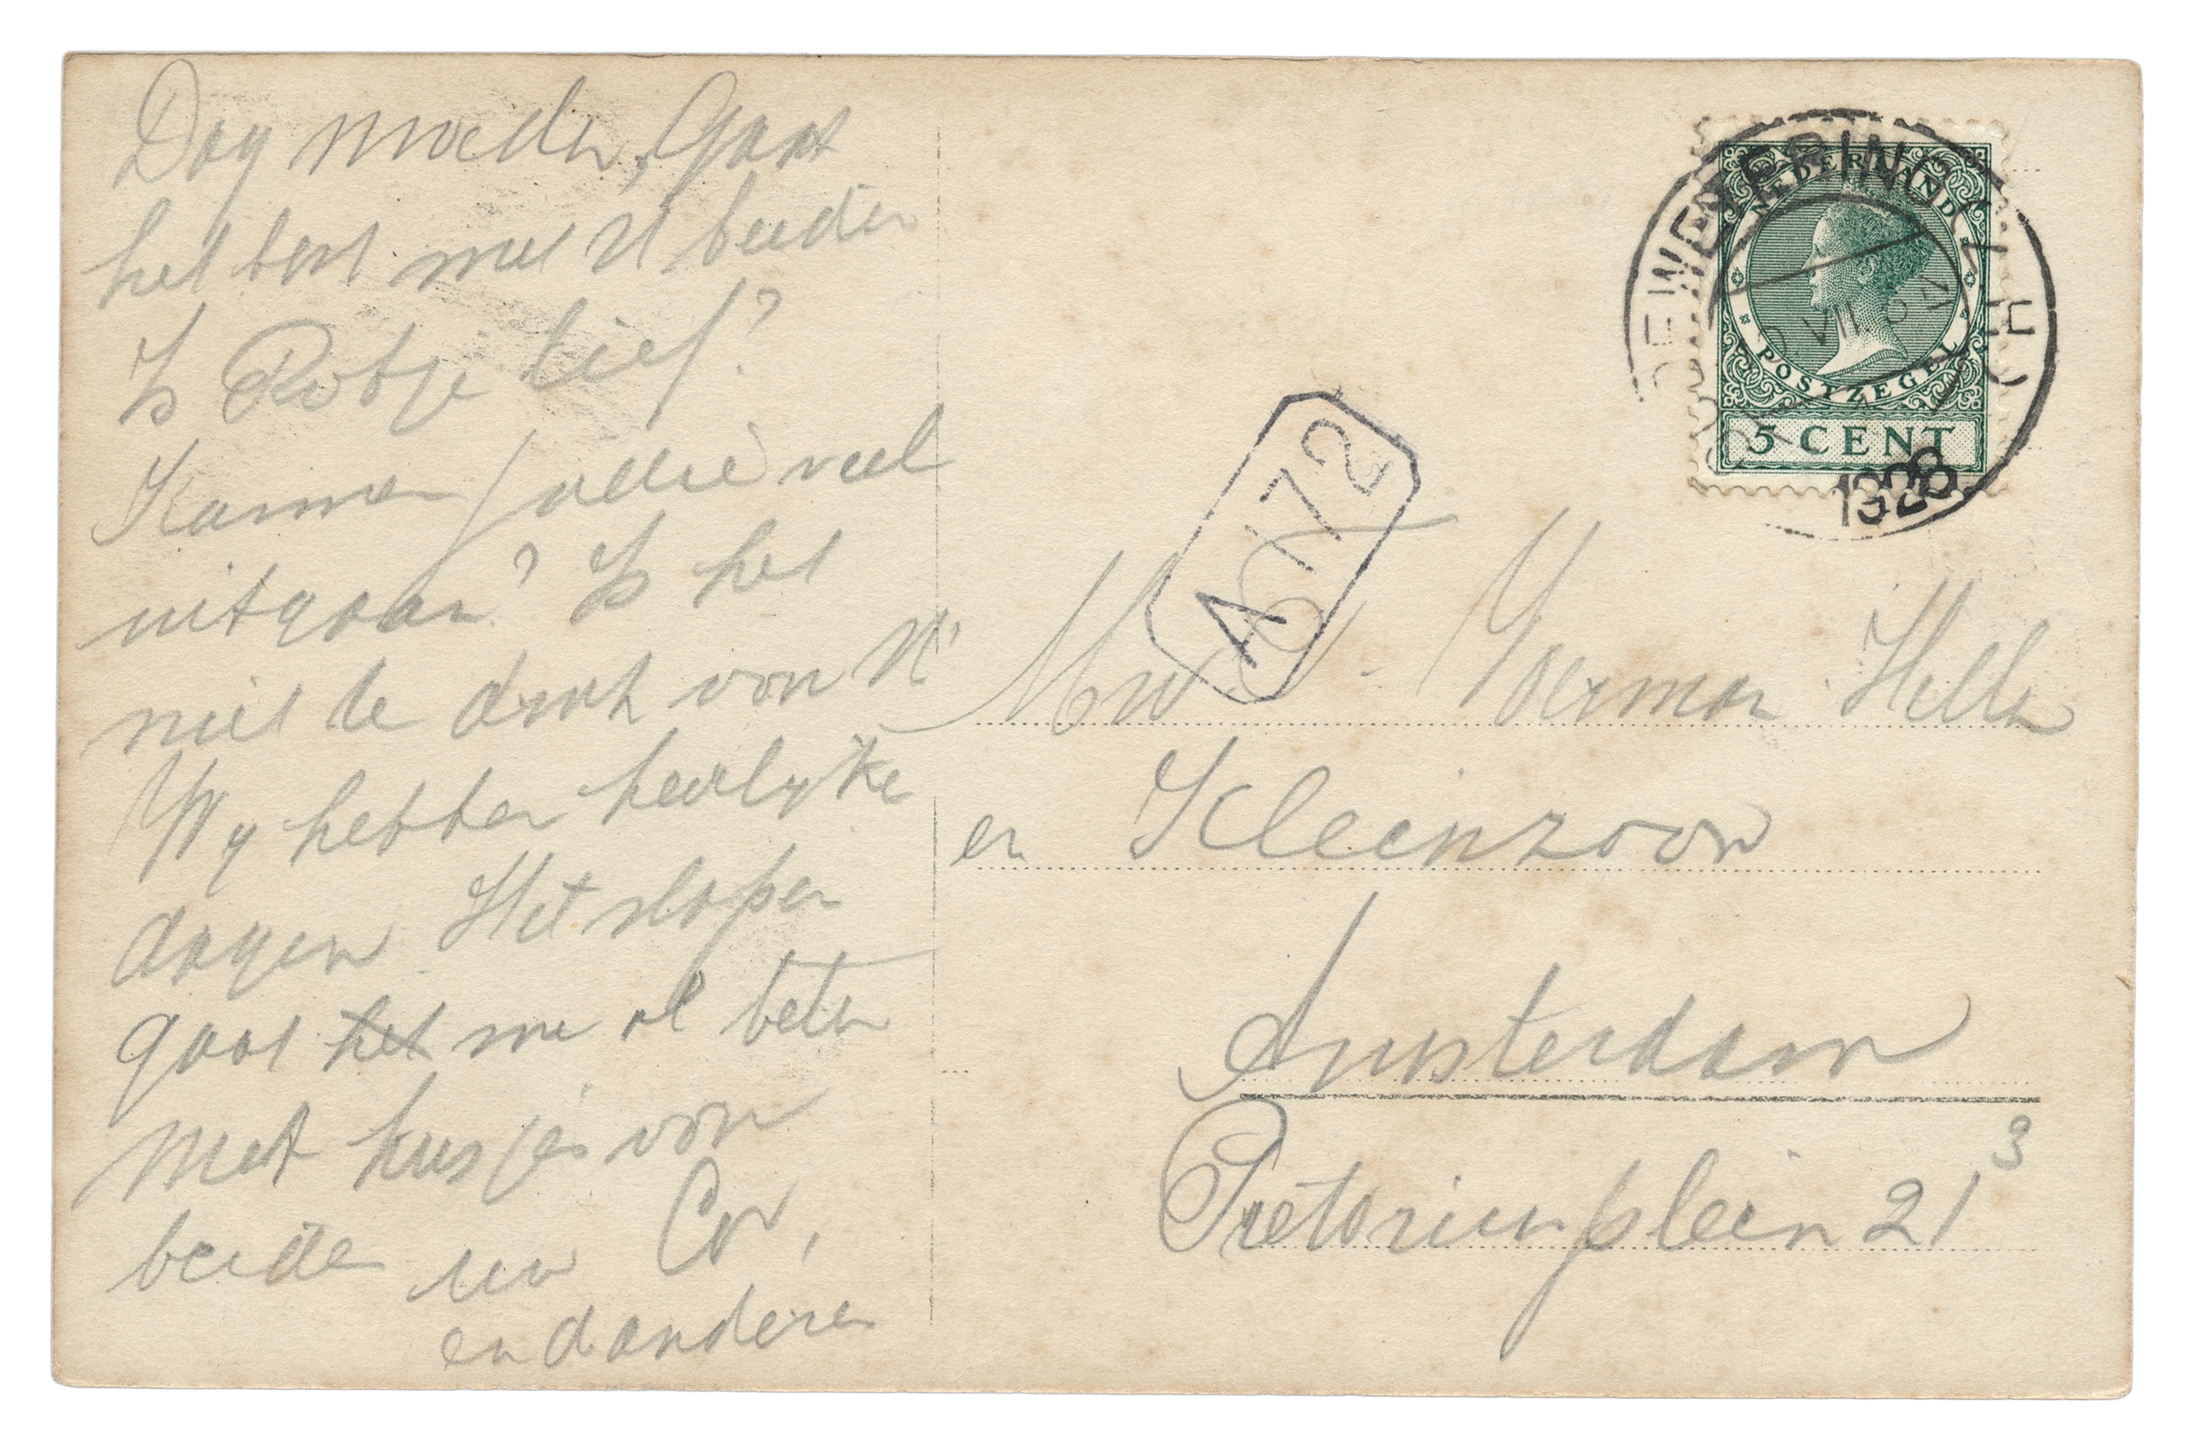 Dag moeder, Gaat
het best met U beiden
Is Robje lief?
Kannen jullie veel
uitgaan? Is het
niet te druk voor U
Wy hebben heerlyke
dagen Het slapen
gaat het me al beter
Met kusjes van
beiden uw Cor,
en d anderen
A 172
NEDERLAND
POSTZEGEL
5 CENT
1928
Mw
en Kleinzoon
Amsterdam
Pretoriusplein 21 3